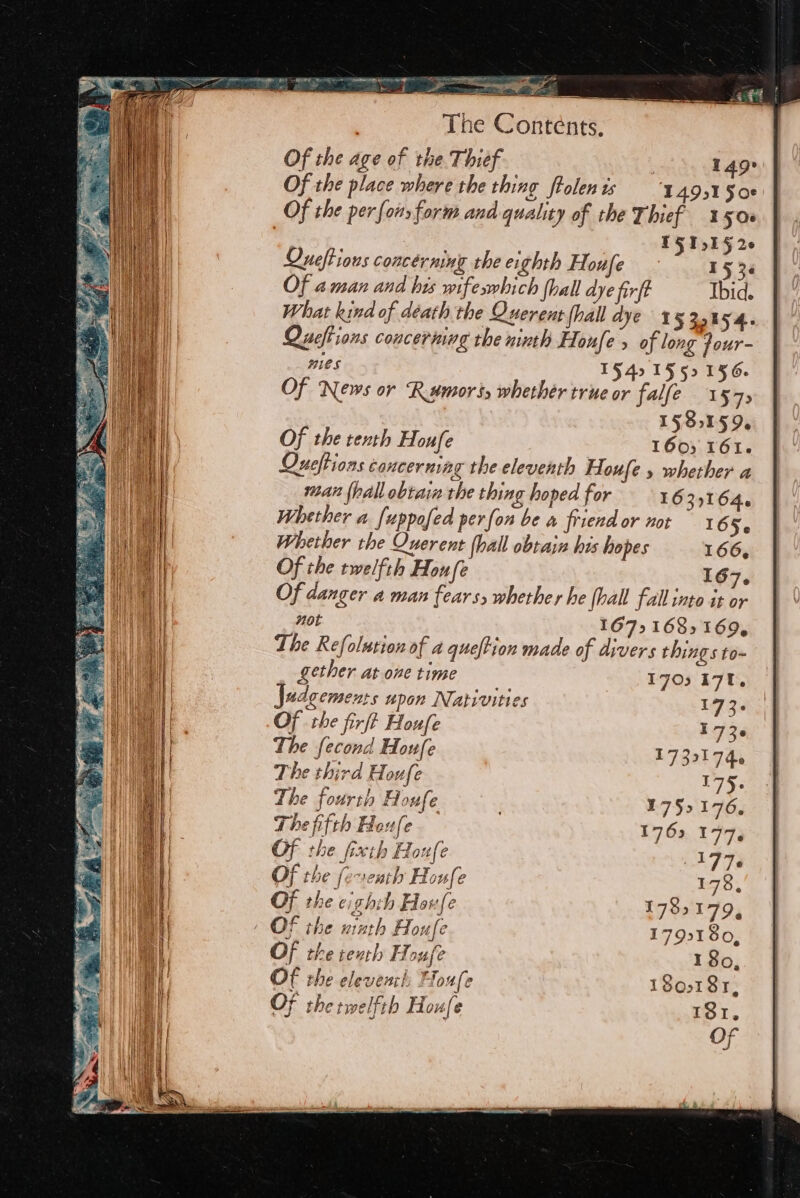 The Contents.
Of the age of the Thief 149.
Of the place where the thing ſtolen is 149,150.
Of the perſon, form and quality of the Thief 150.
151,152.
Queſtions concerning the eighth Houſe 153.
Of a man and his wife, which ſhall dye firſt Ibid.
What kind of death the Querent ſhall dye 153,154.
Queſtions concerning the ninth Houſe, of long Jour-
nies 154, 155, 156.
Of News or Rumors, whether true or falſe 157,
158,159.
Of the tenth Houſe 160, 161.
Queſtions concerning the eleventh Houſe, whether a
man ſhall obtain the thing hoped for 163,164.
Whether a ſuppoſed perſon be a friend or not 165.
Whether the Querent ſhall obtain his hopes 166.
Of the twelfth Houſe 167.
Of danger a man fears, whether he ſhall fall into it or
not 167, 168, 169.
The Reſolution of a queſtion made of divers things to-
gether at one time 170, 171.
Judgements upon Nativities 173.
Of the firſt Houſe 173.
The ſecond Houſe 173,174.
The third Houſe 175.
The fourth Houſe 175, 176.
The fifth Houſe 176, 177.
Of the ſixth Houſe 177.
Of the ſeventh Houſe 178.
Of the eighth Houſe 178,179.
Of the ninth Houſe 179,180.
Of the tenth Houſe 180.
Of the eleventh Houſe 180,181.
Of the twelfth Houſe 181.
Of